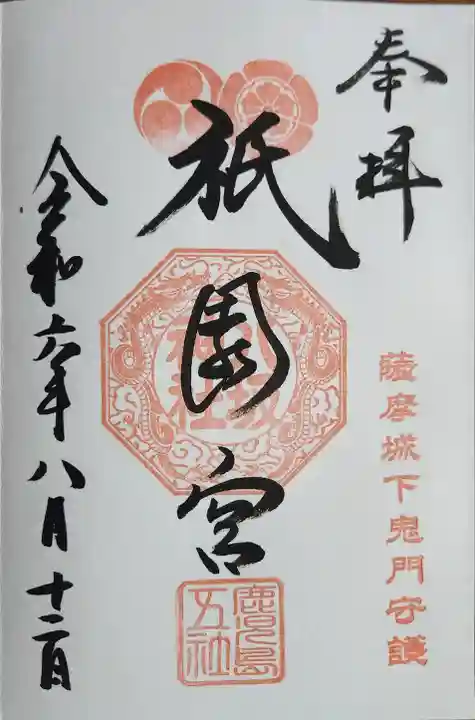 奉拝
薩摩城下鬼門守護
祇園宮
八坂神社
鹿児島五社
令和六年八月十二日